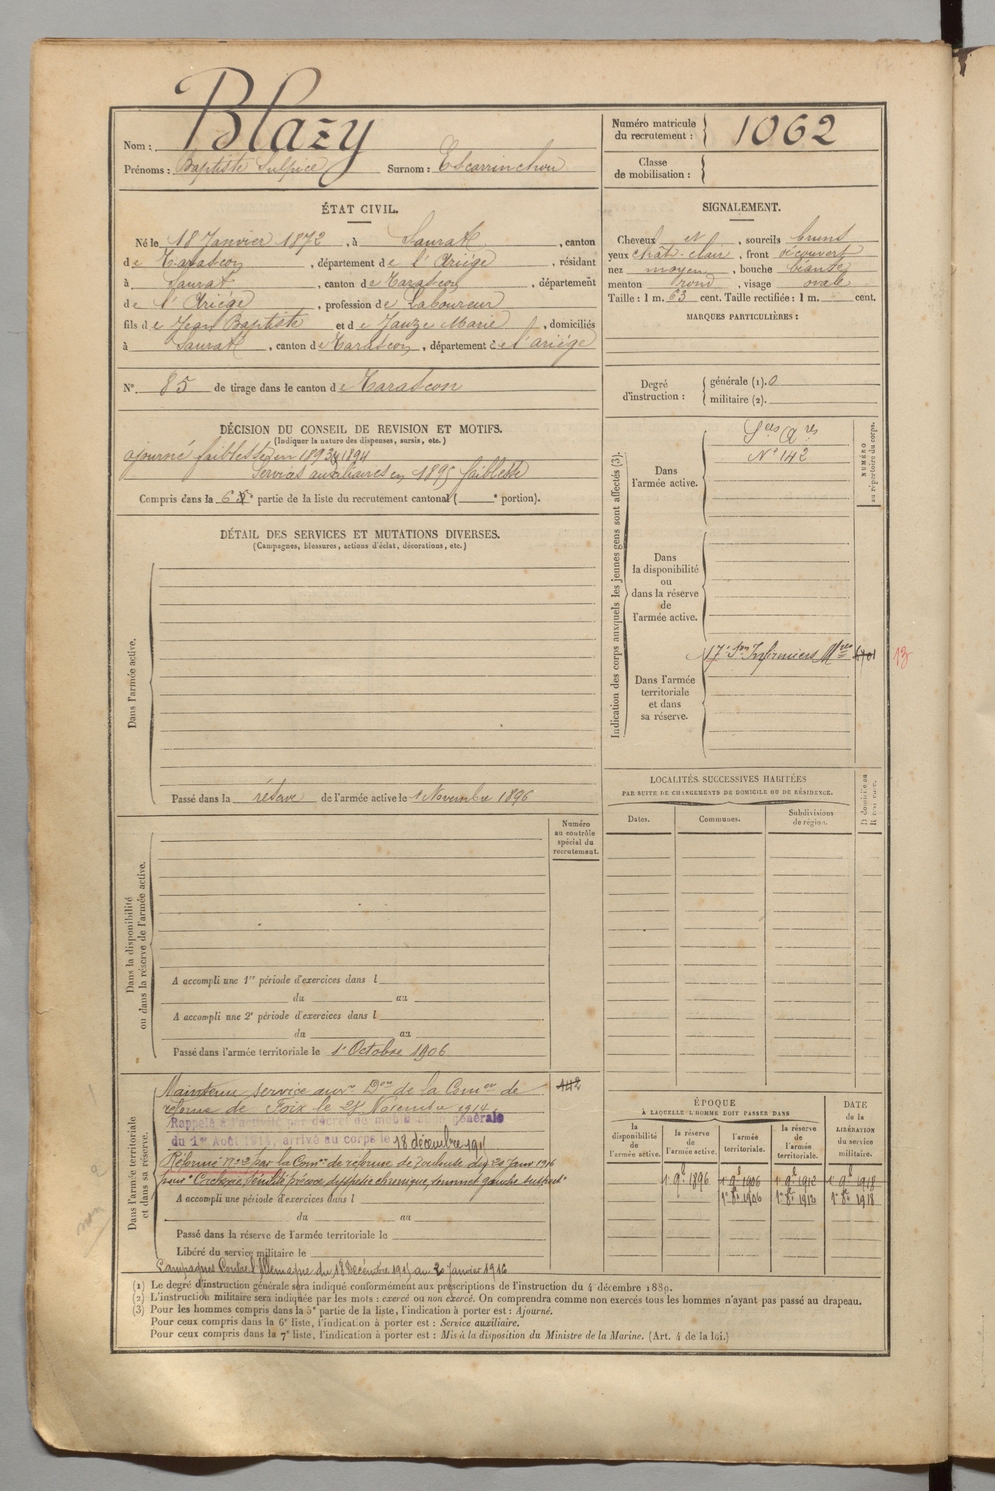 Nom : Blazy
Prénoms : Baptiste Sulpice Surnom : Escarrinchou
Numéro matricule
du recrutement : 1062
Classe
de mobilisation :
ÉTAT CIVIL.
Né le 18 Janvier 1872, à Saurat, canton
de Tarascon, département de l'Ariège, résidant
à Saurat, canton de Tarascon, département
de l'Ariège, profession de Laboureur
fils de Jean Baptiste et de Jauze Marie, domiciliés
à Saurat, canton de Tarascon, département de l'ariège
N° 85 de tirage dans le canton de Tarascon
SIGNALEMENT.
Cheveux et, sourcils bruns
yeux chât. clair, front découvert
nez moyen, bouche béante
menton rond, visage ovale
Taille : 1 m. 63 cent. Taille rectifiée : 1 m. cent.
MARQUES PARTICULIÈRES :
Degré
d'instruction :
générale (1). 0
militaire (2).
DÉCISION DU CONSEIL DE REVISION ET MOTIFS.
(Indiquer la nature des dispenses, sursis, etc.)
ajourné faiblesse en 1893, 1894
Services auxiliaires en 1895 faiblesse
Compris dans la 6e partie de la liste du recrutement cantonal ( e portion).
DÉTAIL DES SERVICES ET MUTATIONS DIVERSES.
(Campagnes, blessures, actions d'éclat, décorations, etc.)
Dans l'armée active.
Passé dans la réserve de l'armée active le 1 Novembre 1896
Indication des corps auxquels les jeunes gens sont affectés (3).
Dans
l'armée active.
Ses Ares
N° 142
NUMÉRO
au répertoire du corps.
Dans
la disponibilité
ou
dans la réserve
de
l'armée active.
Dans l'armée
territoriale
et dans
sa réserve.
17e Son Infirmiers Mres
13
LOCALITÉS SUCCESSIVES HABITÉES
PAR SUITE DE CHANGEMENTS DE DOMICILE OU DE RÉSIDENCE.
Dates. Communes. Subdivisions
de région.
Numéro
au contrôle
spécial du
recrutement.
Dans la disponibilité
ou dans la réserve de l'armée active.
A accompli une 1re période d'exercices dans l
du au
A accompli une 2e période d'exercices dans l
du au
Passé dans l'armée territoriale le 1e Octobre 1906
Dans l'armée territoriale
et dans sa réserve.
Maintenu service auxre Don de la Comon de
réforme de Foix le 24 Novembre 1914. 142
Rappelé à l'activité par décret de mobilisation générale
du 1er Août 1914, arrivé au corps le 18 décembre 1915
Réformé n° 2 par la Comon de réforme de Toulouse du 20 Janv 1916
pour "Cachexie, sénilité précoce, dyspepsie chronique,
A accompli une période d'exercices dans l
du au
Passé dans la réserve de l'armée territoriale le
Libéré du service militaire le
Campagnes Contre l'Allemagne du 18 Décembre 1915 au 20 janvier 1916
ÉPOQUE
À LAQUELLE L'HOMME DOIT PASSER DANS
DATE
de la
LIBÉRATION
du service
militaire.
la
disponibilité
de
l'armée active.
la réserve
de
l'armée active.
l'armée
territoriale.
la réserve
de
l'armée
territoriale.
1e 9e 1896 1e 9e 1906 1e 9e 1912 1e 9e 1918
1e 8e 1906 1e 8e 1912 1e 8e 1918
(1) Le degré d'instruction générale sera indiqué conformément aux prescriptions de l'instruction du 4 décembre 1889.
(2) L'instruction militaire sera indiquée par les mots : exercé ou non exercé. On comprendra comme non exercés tous les hommes n'ayant pas passé au drapeau.
(3) Pour les hommes compris dans la 5e partie de la liste, l'indication à porter est : Ajourné.
Pour ceux compris dans la 6e liste, l'indication à porter est : Service auxiliaire.
Pour ceux compris dans la 7e liste, l'indication à porter est : Mis à la disposition du Ministre de la Marine. (Art. 4 de la loi.)